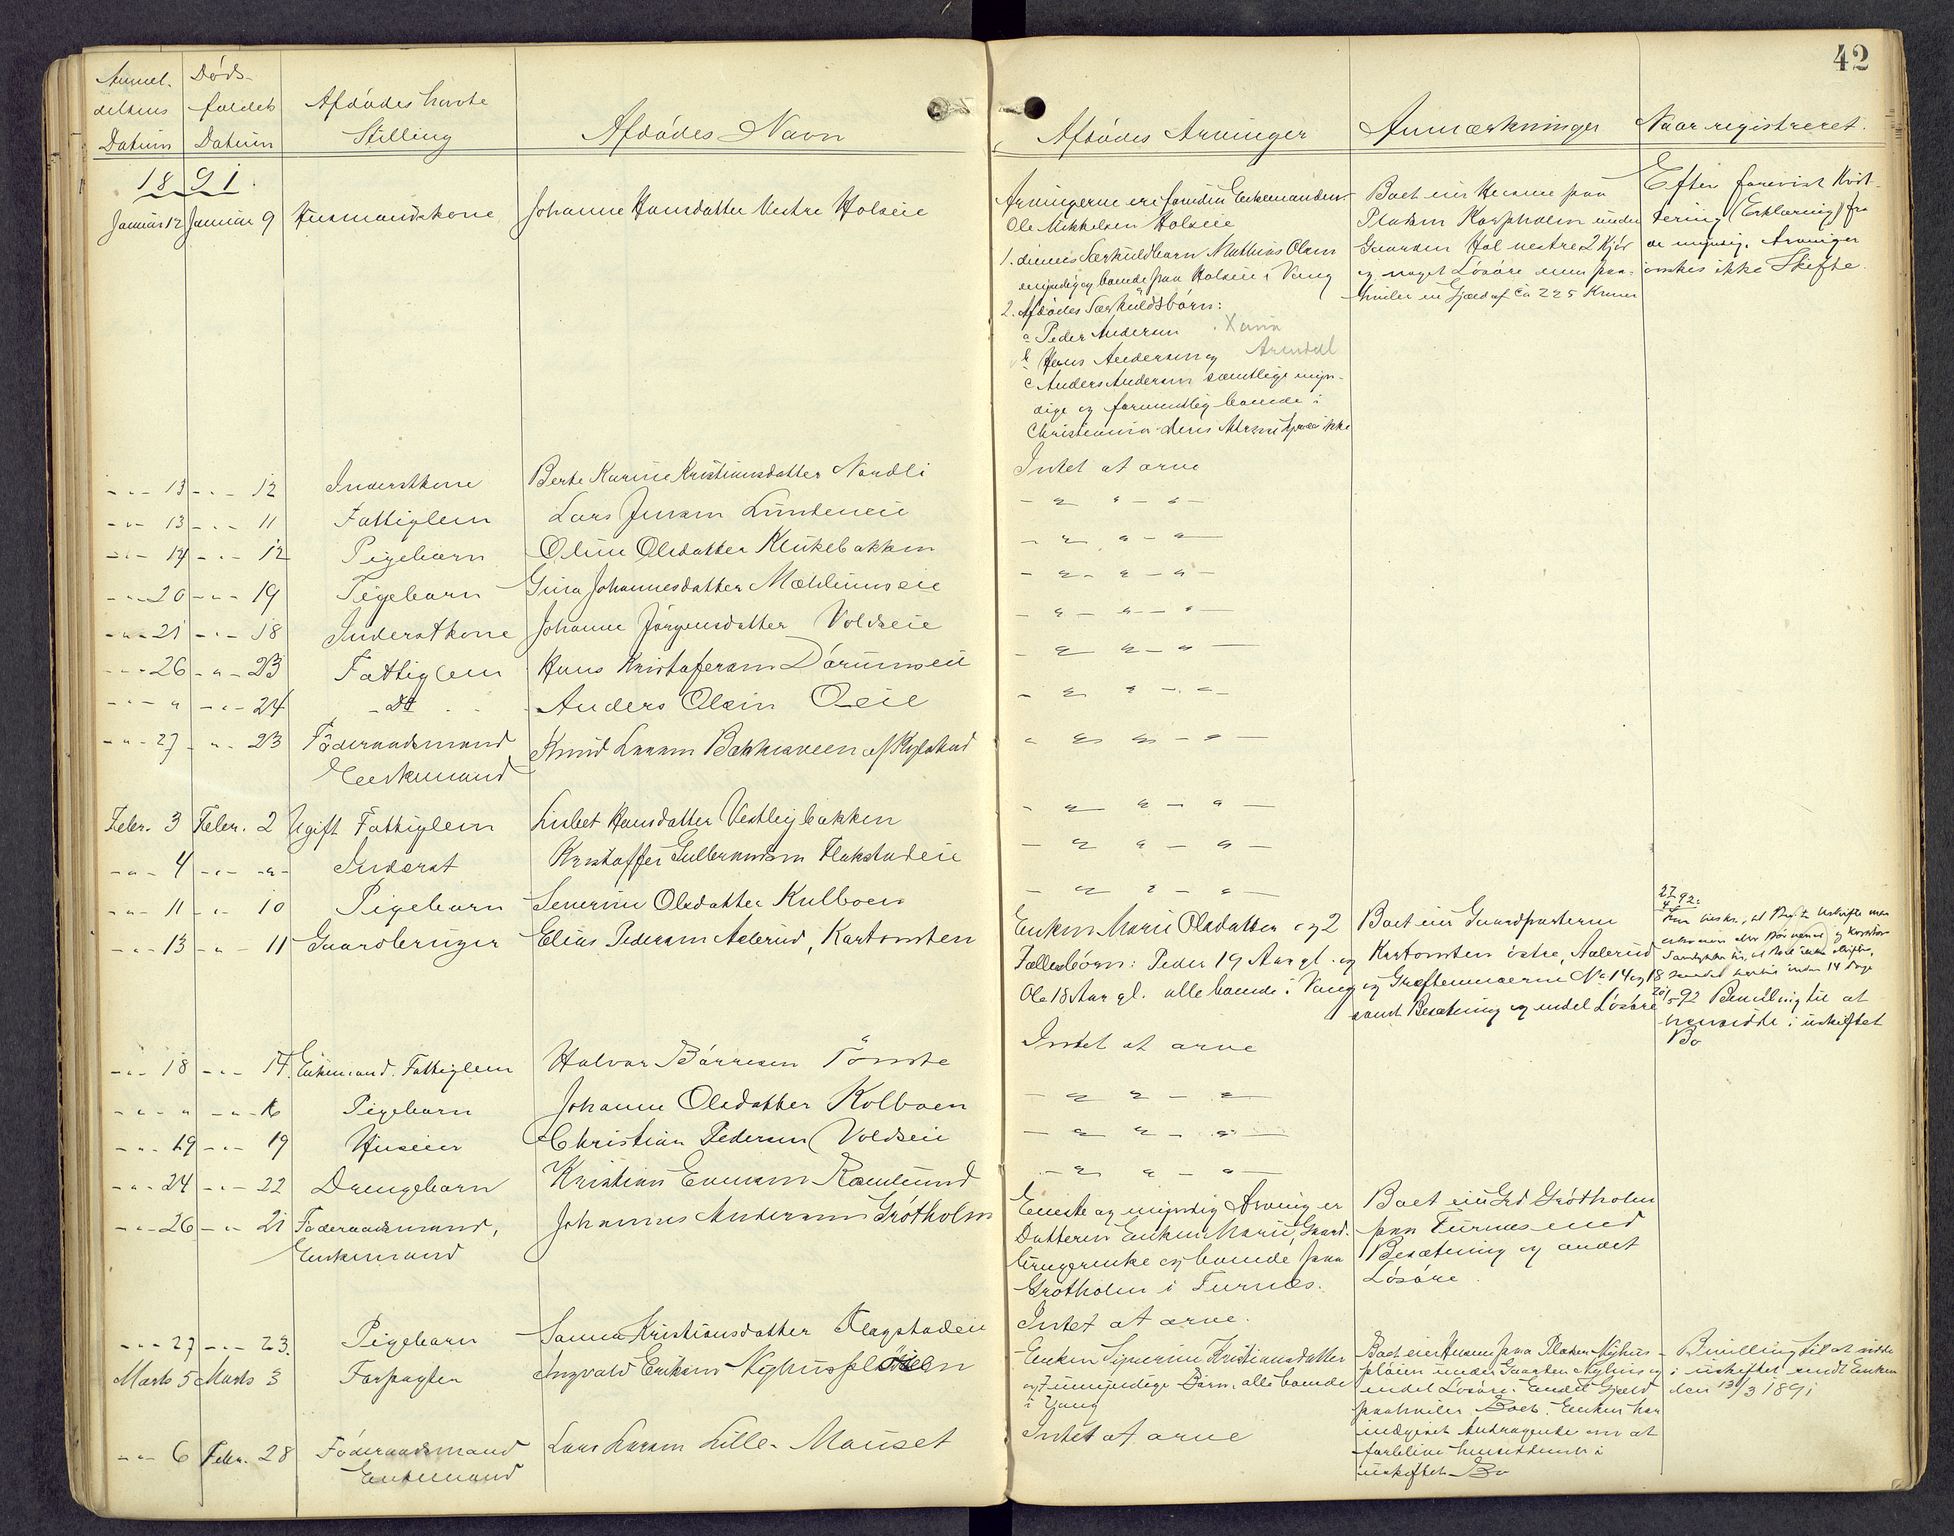 42
Anmel- Døds-
delsens faldets Afdødes havte
Datum Datum Stilling Afdødes Navn Afdødes Arvinger Anmærkninger Naar registreret.
1891.
Januar 12 Januar 9 Husmandskone Johanne Hansdatter Vestre Holseie
Arvingerne ere foruden Enkemanden
Ole Mikkelsen Holseie
1. dennes Særkuldbarn Mathias Olsen
myndig og boende paa Holseie i Vang
2. Afdødes Særkuldsbørn:
a Peder Andersen Xania
b Hans Andersen og Arendal
c Anders Andersen samtlige myn-
dige og formentlig boende i
Christiania deres Adresse ikke
Boet eier Husene paa
Pladsen under
Gaarden Hol vestre 2 Kjør
og noget Løsøre men paa-
hviler en Gjæld af ca 225 Kroner
Efter forevist Kvit-
tering (Erklæring) fra
de myndig. Arvinger
ønskes ikke Skifte.
-"- 13 -"- 12 Inderstkone Berte Karine Kristiansdatter Nordli Intet at arve
-"- 13 -"- 11 Fattiglem Lars Jensen Lundeneie -"-"-"-
-"- 14 -"- 12 Pigebarn Oline Olsdatter Klukebakken -"-"-"-
-"- 20 -"- 19 Pigebarn Gina Johannesdatter Mæhlumseie -"-"-"-
-"- 21 -"- 18 Inderstkone Johanne Jørgensdatter Voldseie -"-"-"-
-"- 26 -"- 23 Fattiglem Hans Kristofersen Dørumseie -"-"-"-
-"- " -"- 24 - Do - Anders Olsen Oeie -"-"-"-
-"- 27 -"- 23 Føderaadsmand Knud Larsen af -"-"-"-
Enkemand
Febr. 3 Febr. 2 Ugift Fattiglem Lisbet Hansdatter Vestlybakken -"-"-"-
-"- 4 -"- -"- Inderst Kristoffer Gulbrandsen Flakstadeie -"-"-"-
-"- 11 -"- 10 Pigebarn Severine Olsdatter Kulboen -"-"-"-
-"- 13 -"- 11 Gaardbruger Elias Pedersen Aalerud, Kartomten
Enken Marie Olsdatter og 2
Fællesbørn: Peder 19 Aar gl. og
Ole 18 Aar gl. alle boende i Vang
Boet eier Gaardparterne
Kartomten østre, Aalerud
og Græftemoerne No 14 og 18
samt Besætning og endel Løsøre
27/4 92.
14 Dage
20/5 92 Bevilling til at
hensidde i uskiftet
Bo
-"- 18 -"- 17. Enkemand. Fattiglem Halvor Børresen Tømte Intet at arve
-"- " -"- 16 Pigebarn Johanne Olsdatter Kolboen -"-"-"-
-"- 19 -"- 19 Huseier Christian Pedersen Voldseie -"-"-"-
-"- 24 -"- 22 Drengebarn Kristian Evensen Ramlund -"-"-"-
-"- 26 -"- 21 Føderaadsmand, Johannes Andersen Grøtholm
Enkemand
Eneste og myndig Arving er
Datteren Enken Marie, Gaard-
brugerenke og boende paa
Grøtholm i Furnæs.
Boet eier Grd Grøtholm
paa Furnæs med
Besætning og andet
Løsøre.
-"- 27 -"- 23. Pigebarn Sanna Kristiansdatter Flagstadeie Intet at arve.
Marts 5 Marts 3 Forpagter Ingvald Eriksen Nyhuspløien
Enken Signerine Kristiansdatter
og 7 umyndige Børn, alle boende
i Vang
Boet eier Husene paa Pladsen Nyhus-
pløien under Gaarden Nyhus og
endel Løsøre. Endel Gjæld
paahviler Boet. Enken har
indgivet Andragende om at
forblive hensiddende i
uskiftet Bo
Bevilling til at sidde
i uskiftet Enken
den 13/3 1891
-"- 6 Febr. 28 Føderaadsmand Lars Larsen Lille-Mauset Intet at arve
Enkemand